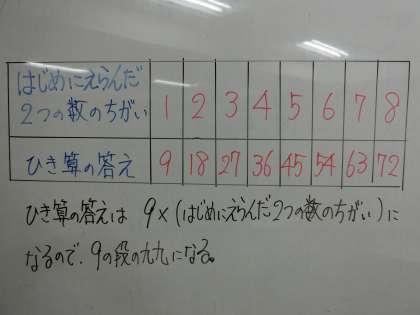 はじめにえらんだ
2つの数のちがい 1 2 3 4 5 6 7 8
ひき算の答え 9 18 27 36 45 54 63 72
ひき算の答えは 9×(はじめにえらんだ2つの数のちがい)に
なるので、9の段の九九になる。